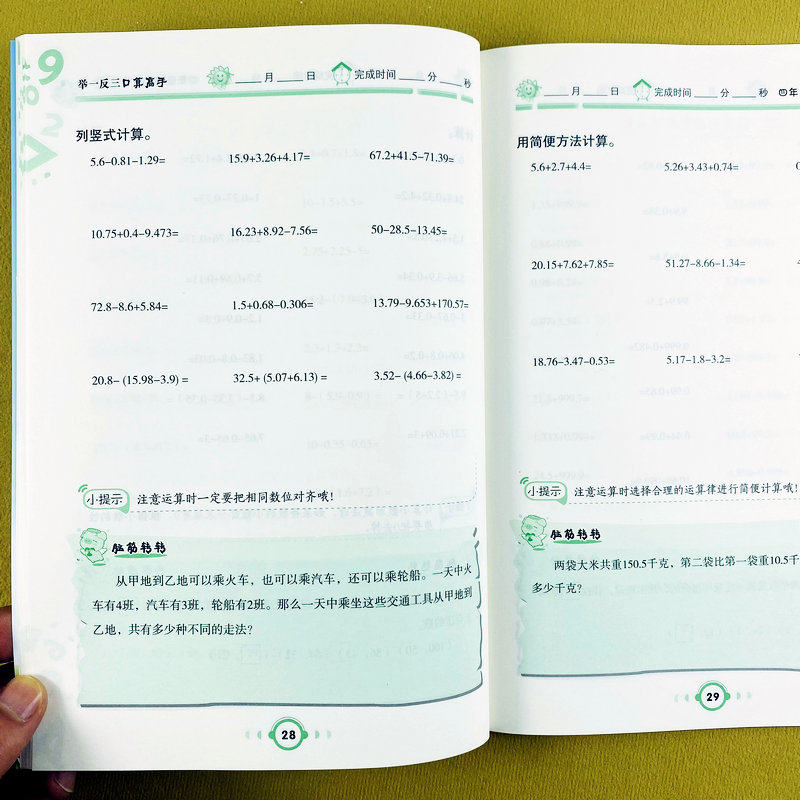 举一反三口算高手
____月____日 完成时间____分____秒
列竖式计算。
5.6-0.81-1.29= 15.9+3.26+4.17= 67.2+41.5-71.39=
10.75+0.4-9.473= 16.23+8.92-7.56= 50-28.5-13.45=
72.8-8.6+5.84= 1.5+0.68-0.306= 13.79-9.653+170.57=
20.8-(15.98-3.9)= 32.5+(5.07+6.13)= 3.52-(4.66-3.82)=
小提示 注意运算时一定要把相同数位对齐哦!
脑筋转转
从甲地到乙地可以乘火车,也可以乘汽车,还可以乘轮船。一天中火
车有4班,汽车有3班,轮船有2班。那么一天中乘坐这些交通工具从甲地到
乙地,共有多少种不同的走法?
28
____月____日 完成时间____分____秒 四年
用简便方法计算。
5.6+2.7+4.4= 5.26+3.43+0.74=
20.15+7.62+7.85= 51.27-8.66-1.34=
18.76-3.47-0.53= 5.17-1.8-3.2=
小提示 注意运算时选择合理的运算律进行简便计算哦!
脑筋转转
两袋大米共重150.5千克,第二袋比第一袋重10.5千
多少千克?
29